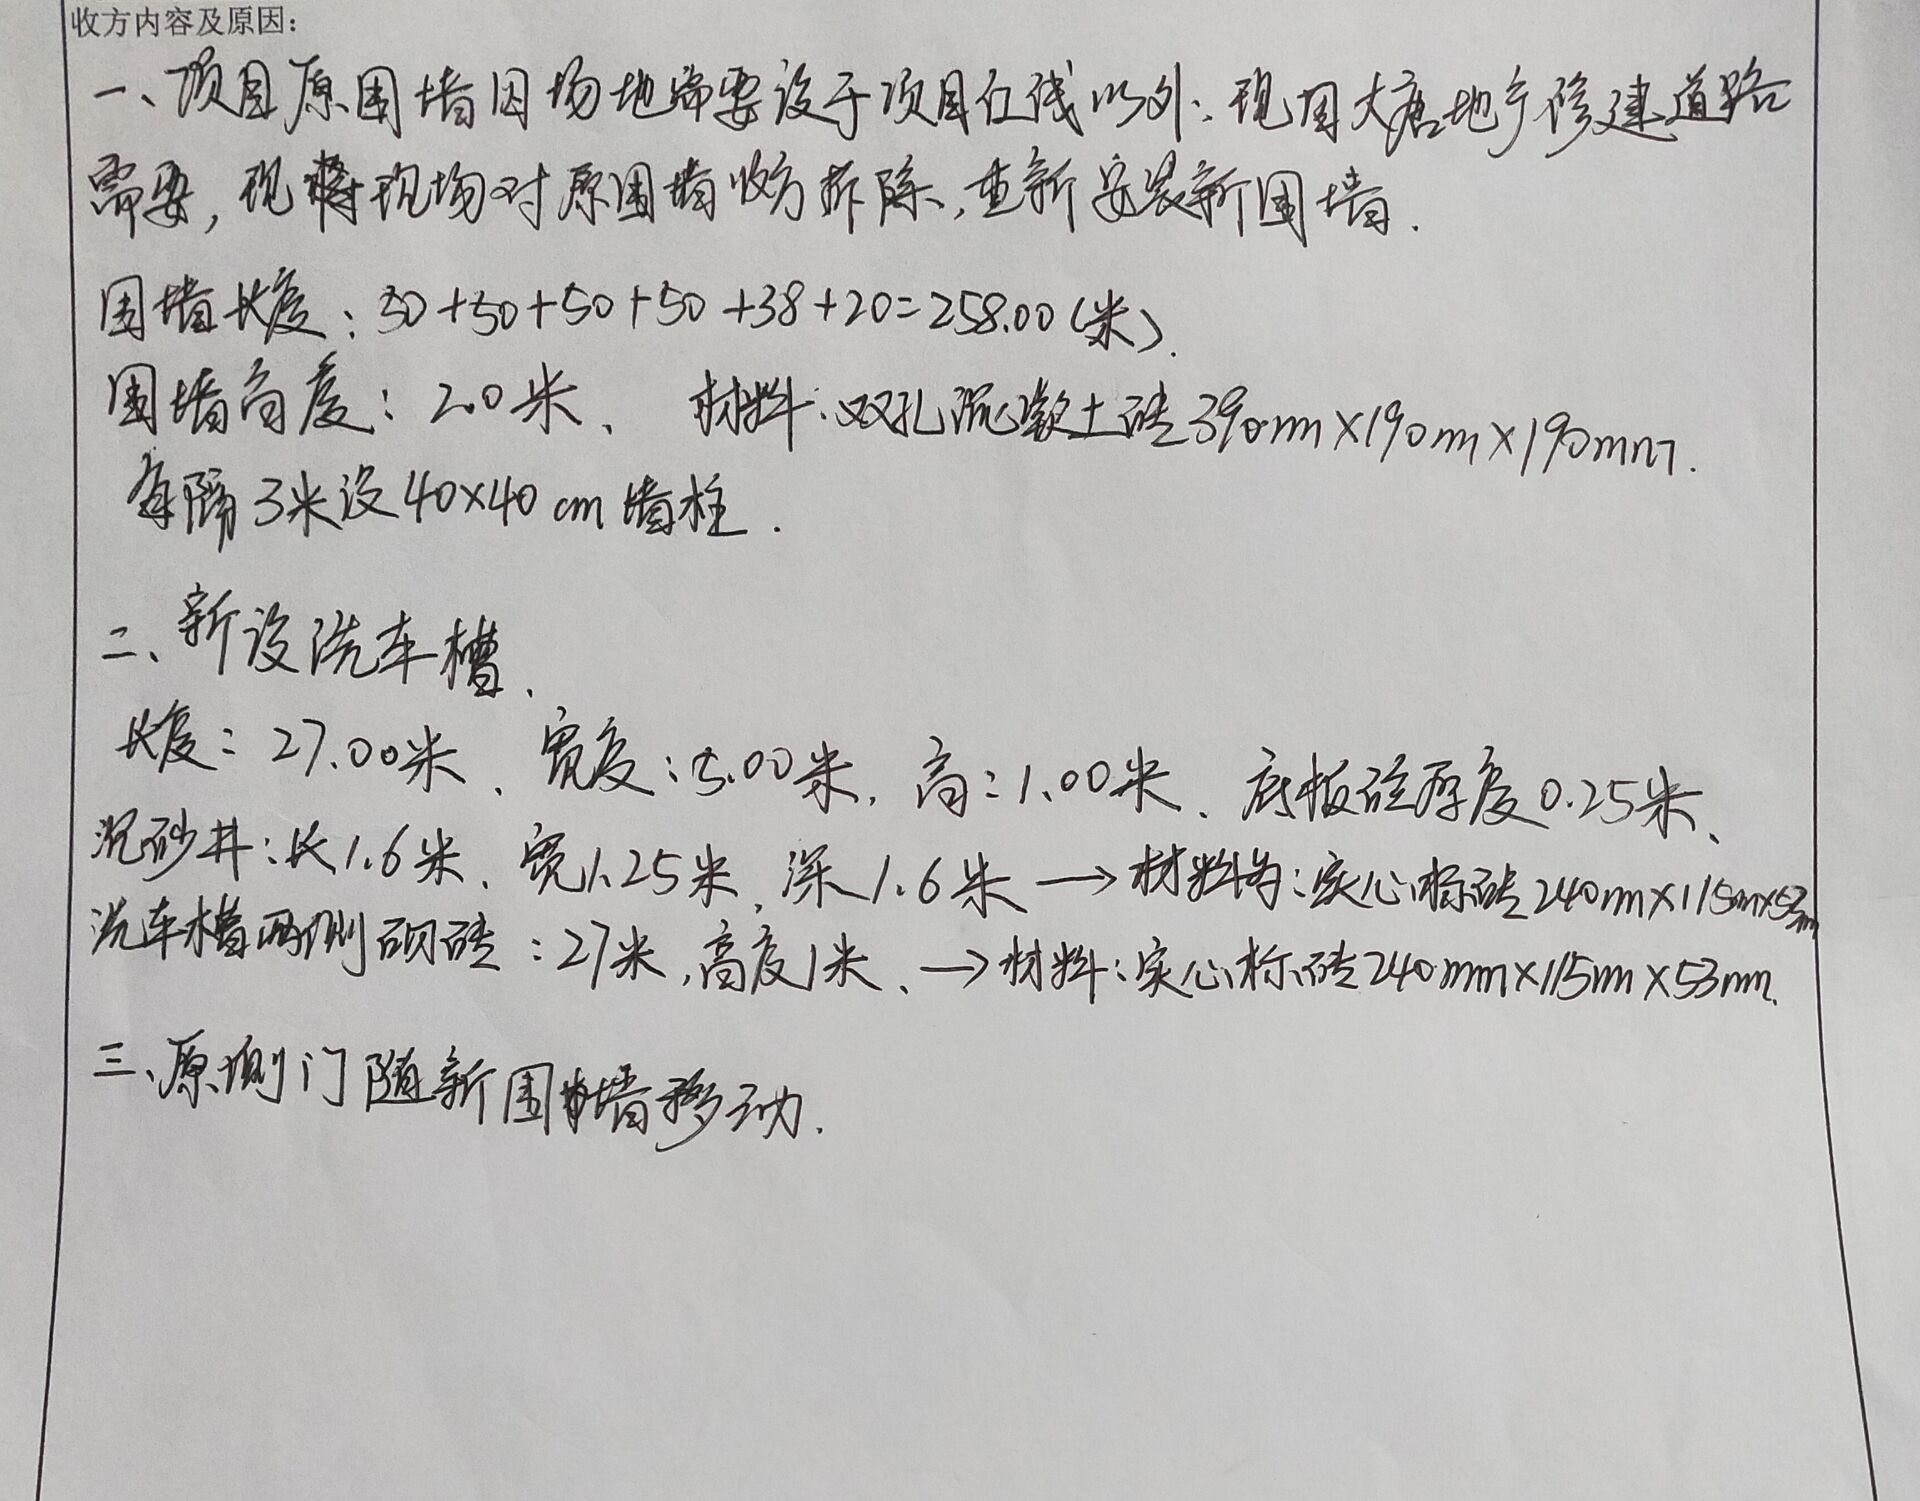 收方内容及原因：
一、项目原围墙因场地需要设于项目红线以外、现因大唐地产修建道路
需要，现将现场对原围墙收方拆除，重新安装新围墙.
围墙长度：50+50+50+50+38+20=258.00(米).
围墙高度：2.0米、 材料：双孔混凝土砖390mm×190mm×190mm.
每隔3米设40×40cm墙柱.
二、新设洗车槽、
长度：27.00米、宽度：5.00米、高：1.00米、底板砼厚度0.25米、
沉砂井：长1.6米、宽1.25米、深1.6米→材料为：实心标砖240mm×115mm×53mm
洗车槽两侧砌砖：27米，高度1米、→材料：实心标砖240mm×115mm×53mm.
三、原侧门随新围墙移动.